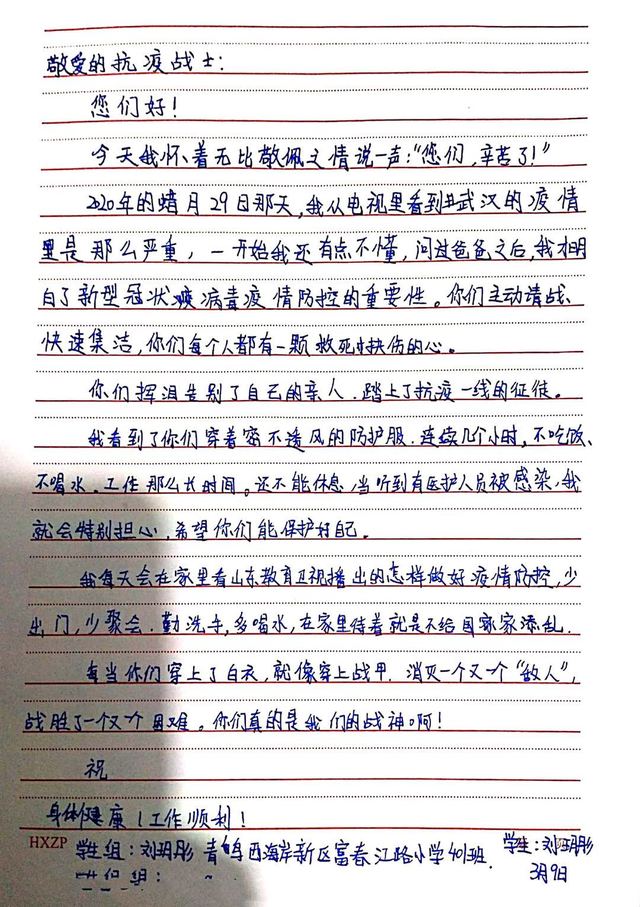 敬爱的抗疫战士：
您们好！
今天我怀着无比敬佩之情说一声："您们，辛苦了！"
2020年的蜡月29日那天，我从电视里看到武汉的疫情
是那么严重，一开始我还有点不懂，问过爸爸之后，我才明
白了新型冠状病毒疫情防控的重要性。你们主动请战、
快速集洁，你们每个人都有一颗救死扶伤的心。
你们挥泪告别了自己的亲人．踏上了抗疫一线的征徒。
我看到了你们穿着密不透风的防护服．连续几个小时，不吃饭、
不喝水．工作那么长时间。还不能休息，当听到有医护人员被感染，我
就会特别担心，希望你们能保护好自己。
我每天会在家里看山东教育卫视播出的怎样做好疫情防控，少
出门，少聚会．勤洗手，多喝水，在家里待着就是不给国家添乱．
每当你们穿上了白衣，就像穿上战甲．消灭一个又一个"敌人"，
战胜了一个又一个困难。你们真的是我们的战神啊！
祝
身体健康！工作顺利！
HXZP 学生组：刘玥彤 青岛西海岸新区富春江路小学401班． 学生：刘玥彤
3月9日